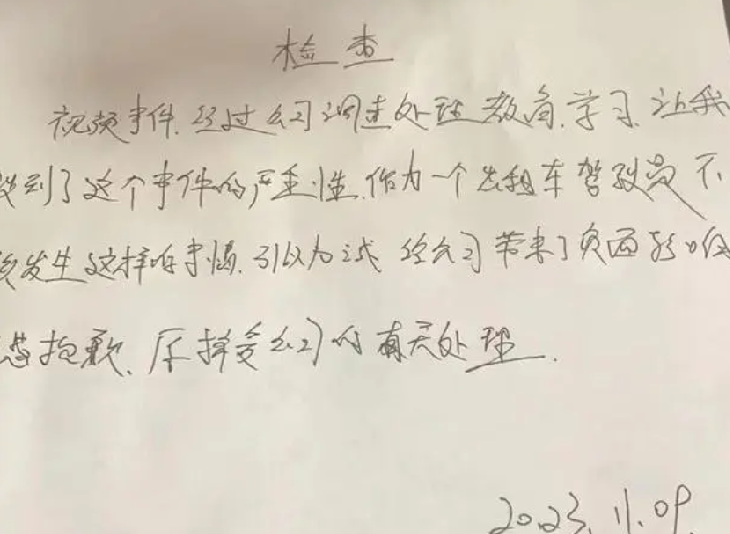 检查
视频事件.经过公司调查处理教育.学习.让我
到了这个事件的严重性.作为一个出租车驾驶员不
发生这样的事情.引以为 给公司带来了负面影响
抱歉.接受公司的有关处理.
2023.11.09